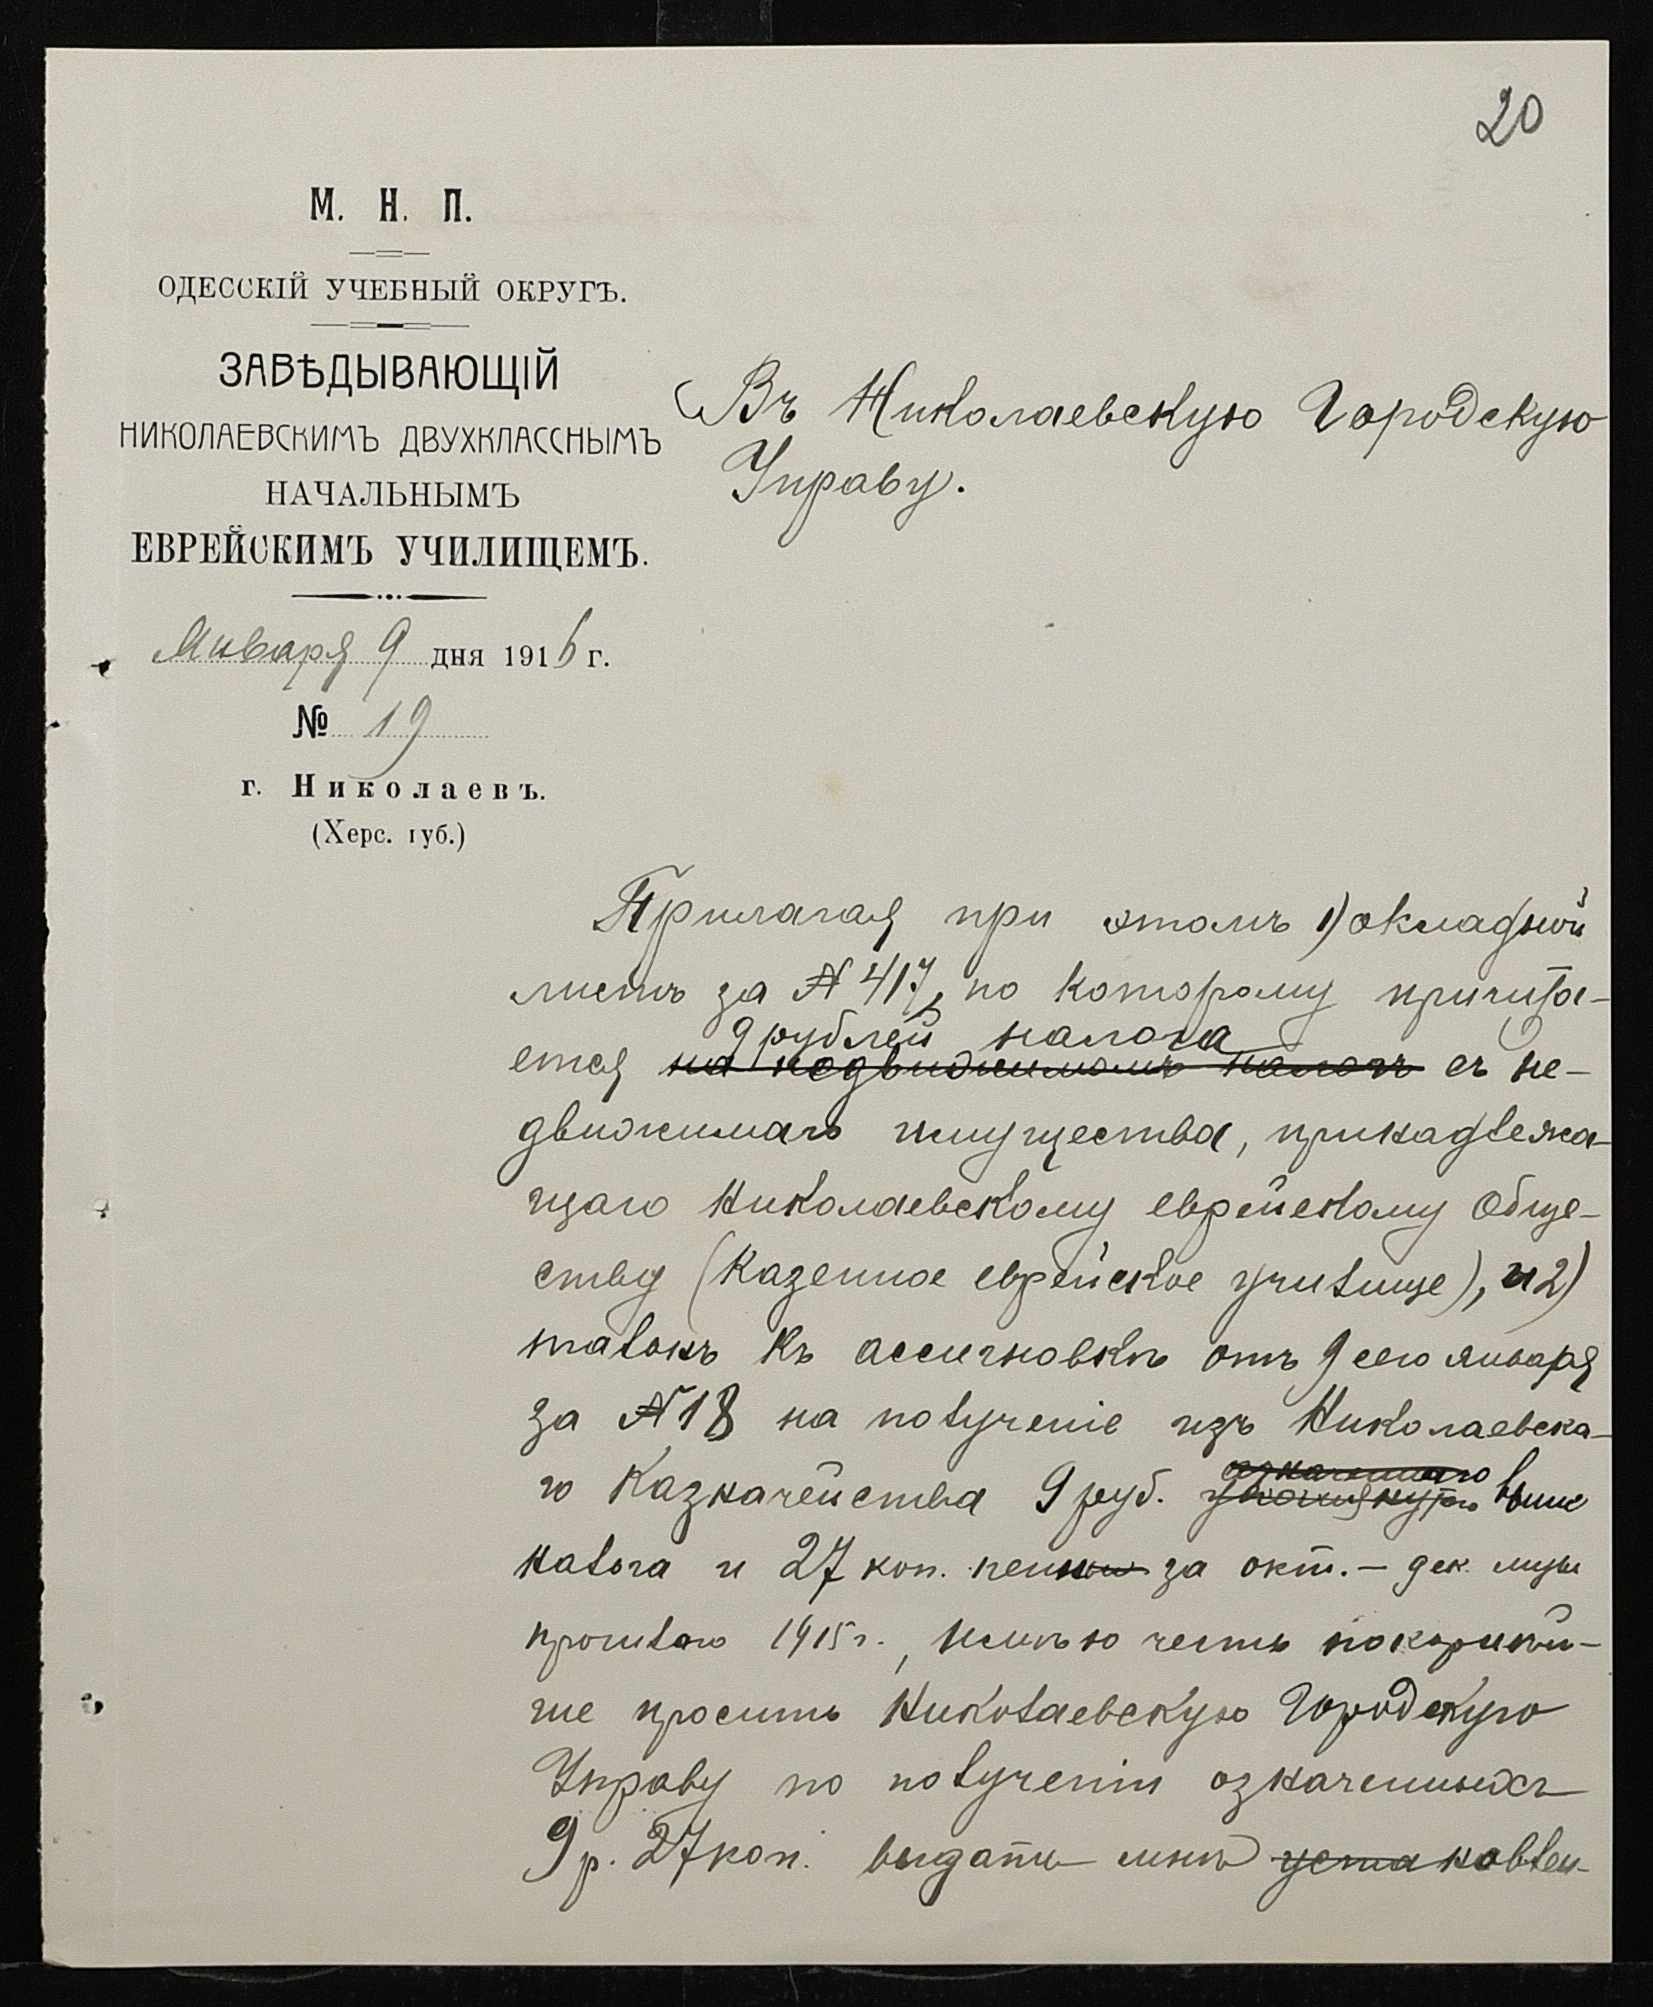 20
М. Н. П.
ОДЕССКІЙ УЧЕБНЫЙ ОКРУГЪ.
ЗАВѢДЫВАЮЩІЙ
НИКОЛАЕВСКИМЪ ДВУХКЛАССНЫМЪ
НАЧАЛЬНЫМЪ
ЕВРЕЙСКИМЪ УЧИЛИЩЕМЪ.
Января 9 дня 1916 г.
№ 19
г. Николаевъ.
(Херс. губ.)
Въ Николаевскую Городскую
Управу.
Прилагая при этомъ 1) окладной
листъ за № 417, по которому причита-
9 рублей налога
ется на недвижимомъ налогъ съ не-
движимаго имущества, принадлежа-
щаго Николаевскому еврейскому Обще-
ству (Казенное еврейское училище), и 2)
талонъ къ ассигновкѣ отъ 9 сего января
за № 18 на полученіе изъ Николаевска-
го Казначейства 9 руб. упомянутаго выше
означеннаго
налога и 27 коп. пени за окт. - дек. мцы
прошлаго 1915 г., имѣю честь покорнѣй-
ше просить Николаевскую Городскую
Управу по полученіи означенныхъ
9 р. 27 коп. выдать мнѣ установлен-